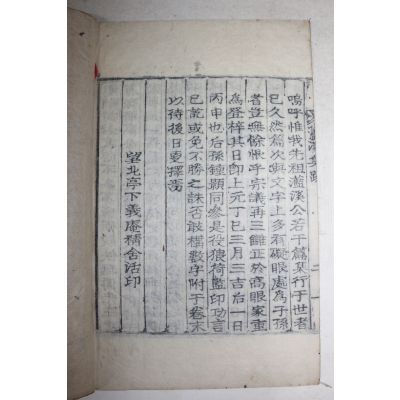 嗚呼惟我先祖濫溪公若干篇集行于世者
已久然篇次與文字上多有礙眼處爲子孫
者豈無餘恨乎宗議再三讎正於高眼家重
爲登梓其日卽上元丁巳三月三吉后一日
丙申也后孫鍾顯同參是役猥荷監印功言
已訖或免不勝之誅否敢構數字附于卷末
以待後日更擇焉
望北亭下義庵精舍活印